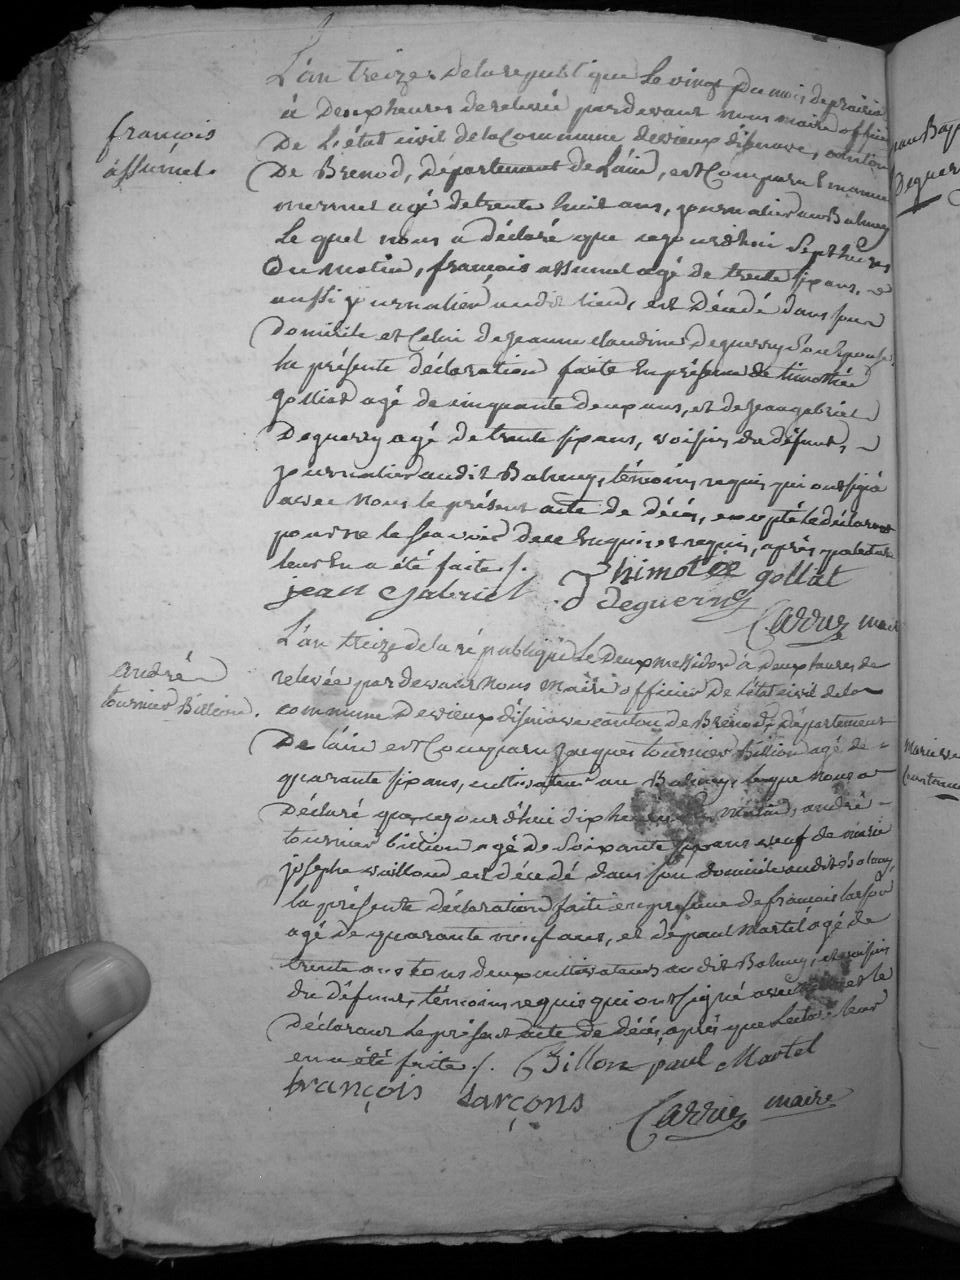 françois
assumel.
L'an treize de la republique le vingt du mois de prairial
à deux heures de relevée pardevant nous maire officier
De L'état civil de la Commune de vieux d'isenave, canton
De Brenod, Département de L'ain, est Comparu Emanuel
mermet agé de trente huit ans, journalier au Balmey
Le quel nous a déclaré que cejourdhui sept heures
Du matin, françois assumel agé de trente six ans,
aussi journalier audit lieu, est Décédé dans son
Domicile et Celui de jeanne claudine Deguerry son Epouse.
la présente déclaration faite En présence de timothée
golliat agé de cinquante deux ans, et de jean gabriel
Deguerry agé de trente six ans, voisins du défunt,
journalier audit Balmey, témoins requis qui ont signé
avec nous le présent acte de décès, excepté le déclarant
pour ne le savoir de ce Enquis et requis, après que lecture
leur En a été faite ./.
thimotée gollat
jean Gabriel Deguerry
Carrier maire
andré
tournier Billion.
L'an treize de la république Le Deux messidor à deux heures de
relevée pardevant nous maire officier de l'état civil de la
commune De vieux d'isenave canton de Brenod, département
De l'ain est Comparu jacques tournier Billion agé de
quarante six ans, cultivateur au Balmey, lequel nous a
Déclaré que cejourd'hui dix heures du matin, andré
tournier billion agé de soixante six ans veuf de marie
josephe vuilloud est décédé dans son domicile audit Balmey,
la présente déclaration faite en présence de françois larçon
agé de quarante neuf ans, et de paul Martel agé de
trente ans tous deux cultivateurs audit Balmey, et voisins
du défunt, témoins requis qui ont signé avec nous et le
déclarant Le présent acte de décès, après que Lecture leur
en a été faite ./. Billion paul Martel
françois Larçons
Carrier maire